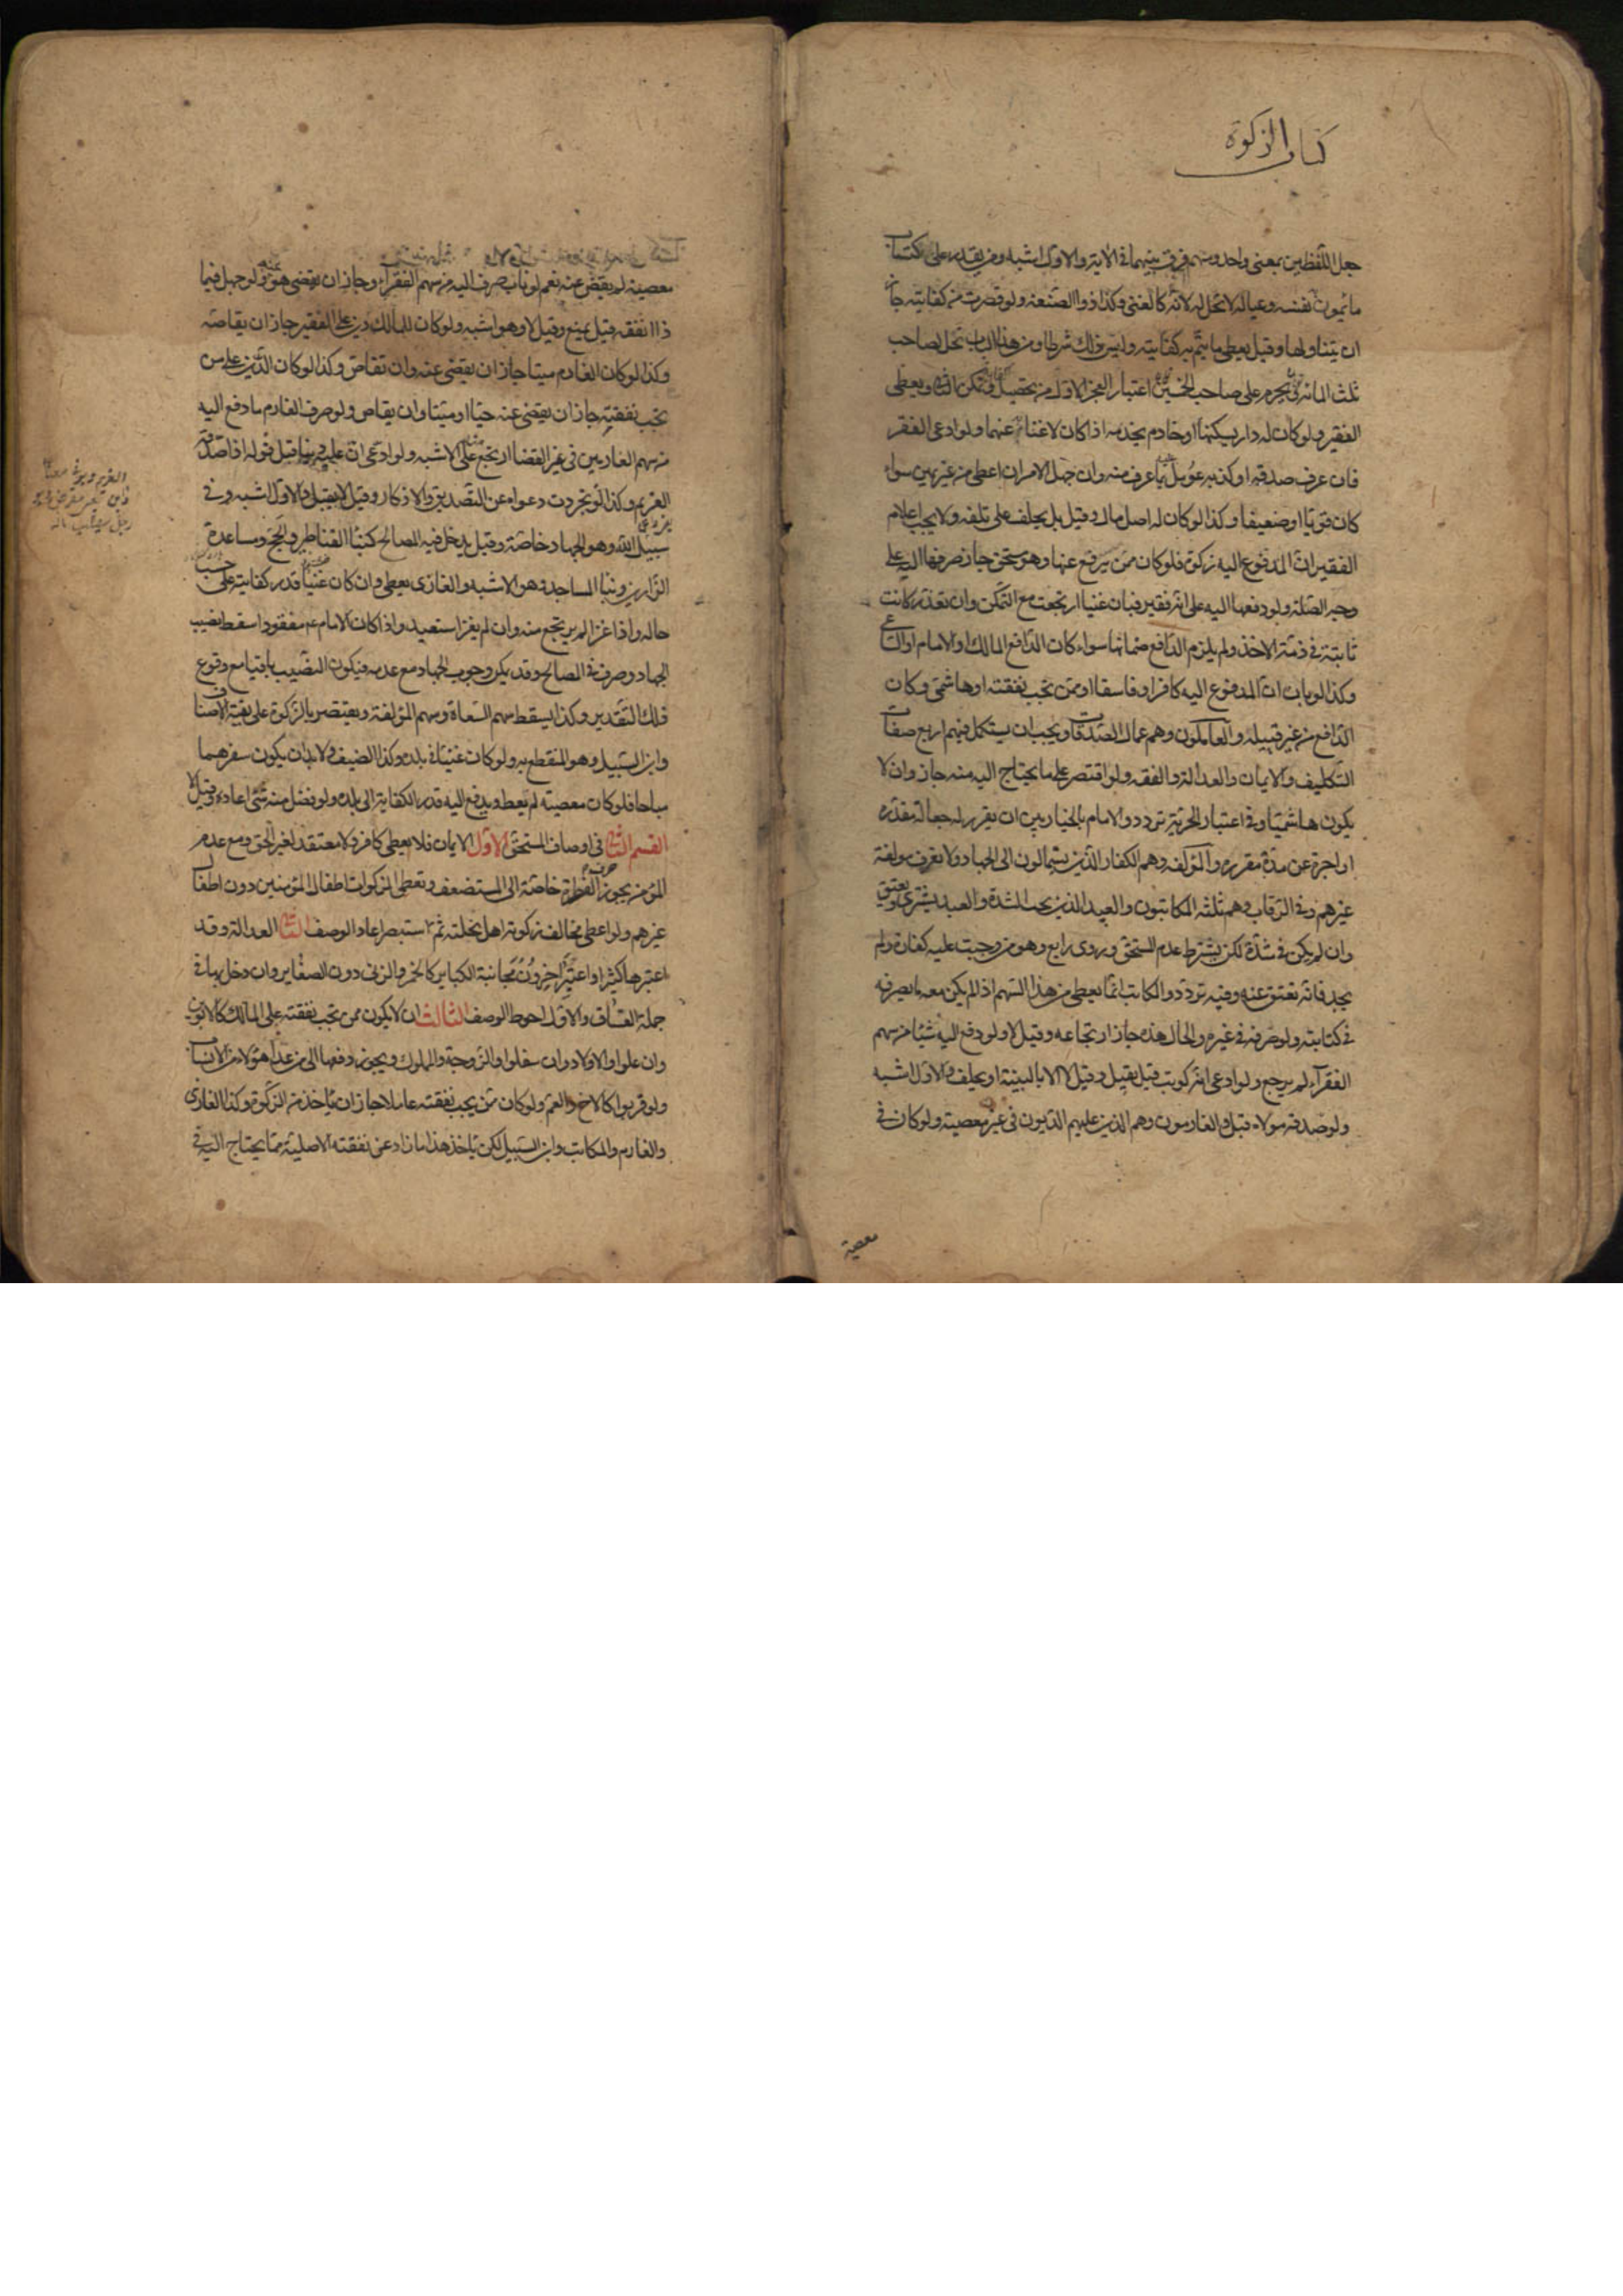 كتاب الزكوة
جعل اللفظين بمعنى واحد ومنهم من فرق بينهما فى الاية والاول اشبه ومن يقدر على اكتساب
ما يمون نفسه وعياله لا تحل له لانه كالغنى وكذا ذو الصنعة ولو قصرت عن كفايته جاز
ان يتناولها وقيل يعطى ما يتم به كفايته وليس ذلك شرطا ومن هذا الباب تحل لصاحب
ثلث المائة وتحرم على صاحب الخمسين اعتبار العجز الاول من تحصيل كفايته وتمكن الثانى ويعطى
الفقير ولو كان له دار يسكنها او خادم يخدمه اذا كان لا غناء عنهما ولو ادعى الفقر
فان عرف صدقه او كذبه عومل بما عرف منه وان جهل الامران اعطى من غير يمين سواء
كان قويا او ضعيفا وكذا لو كان له اصل مال وقيل بل يحلف على تلفه ولا يجب اعلام
الفقير ان المدفوع اليه زكوة فلو كان ممن يترفع عنها وهو مستحق جاز صرفها اليه على
وجه الصلة ولو دفعها اليه على انه فقير فبان غنيا ارتجعت مع التمكن وان تعذر كانت
ثابتة فى ذمة الاخذ ولم يلزم الدافع ضمانها سواء كان الدافع المالك او الامام او الساعى
وكذا لو بان ان المدفوع اليه كافر او فاسقا او ممن تجب نفقته او هاشمى وكان
الدافع من غير قبيله والعاملون وهم عمال الصدقات ويجب ان يستكمل فيهم اربع صفات
التكليف والايمان والعدالة والفقه ولو اقتصر على ما يحتاج اليه منه جاز وان لا
يكون هاشميا وفى اعتبار الحرية تردد والامام بالخيار بين ان يقرر له جعالة مقدرة
او اجرة عن مدة مقررة والمؤلفه وهم الكفار الذين يستمالون الى الجهاد ولا نعرف مؤلفة
غيرهم وفى الرقاب وهم ثلثة المكاتبون والعبيد الذين تحت الشدة والعبد يشترى ويعتق
وان لم يكن فى شدة لكن بشرط عدم المستحق وروى رابع وهو من وجبت عليه كفارة ولم
يجد فانه تعتق عنه وفيه تردد والمكاتب انما يعطى من هذا السهم اذا لم يكن معه ما يصرفه
فى كتابته ولو صرفه فى غيره والحال هذه جاز ارتجاعه وقيل لا ولو دفع اليه شيئا من سهم
الفقراء لم يرجع ولو ادعى انه كوتب قيل يقبل وقيل لا الا بالبينة او يحلف والاول اشبه
ولو صدقه مولاه قبل والغارمون وهم الذين عليهم الديون فى غير معصية ولو كان فى
معصية
معصية لم يقض عنه نعم لو تاب صرف اليه من سهم الفقراء وجاز ان يقضى هو ولو جهل فيما
ذا انفقه قيل يمنع وقيل لا وهو اشبه ولو كان للمالك دين على الفقير جاز ان يقاصه
وكذا لو كان الغارم ميتا جاز ان يقضى عنه وان تقاص وكذا لو كان الدين على من
تجب نفقته جاز ان يقضى عنه حيا او ميتا وان يقاص ولو صرف الغارم ما دفع اليه
من سهم الغارمين فى غير القضا ارتجع على الاشبه ولو ادعى ان عليه دينا قبل قوله اذا صدقه
الغريم وكذا لو تجردت دعواه عن التصديق والانكار وقيل لا يقبل والاول اشبه وفى
سبيل الله وهو الجهاد خاصة وقيل يدخل فيه المصالح كبناء القناطر والحج ومساعدة
الزائرين وبناء المساجد وهو الاشبه والغازى يعطى وان كان غنيا قدر كفايته على حسب
حاله واذا غزا لم يرتجع منه وان لم يغز استعيد واذا كان الامام مفقودا سقط نصيب
الجهاد وصرف فى المصالح وقد يمكن وجوب الجهاد مع عدمه فيكون النصيب باقيا مع وقوع
ذلك التقدير وكذا يسقط سهم السعاة وسهم المؤلفة ويقتصر بالزكوة على بقية الاصناف
وابن السبيل وهو المنقطع به ولو كان غنيا فى بلده وكذا الضيف ولا بد ان يكون سفرهما
مباحا فلو كان معصية لم يعط ويدفع اليه قدر الكفاية الى بلده ولو فضل منه شئ اعاده وقيل لا
القسم الثانى فى اوصاف المستحق الاول الايمان فلا يعطى كافر ولا معتقد لغير الحق ومع عدم
المؤمن يجوز صرف الفطرة خاصة الى المستضعف وتعطى الزكوات اطفال المؤمنين دون اطفال
غيرهم ولو اعطى مخالف زكوته اهل نحلته ثم استبصر اعاد الوصف الثانى العدالة وقد
اعتبرها كثير واعتبر اخرون مجانبة الكبائر كالخمر والزنى دون الصغاير وان دخل بها فى
جملة الفساق والاول احوط الوصف الثالث ان لا يكون ممن تجب نفقته على المالك كالابوين
وان علوا والاولاد وان سفلوا والزوجة والمملوك ويجوز دفعها الى من عدا هؤلاء من الانساب
ولو قربوا كالاخ والعم ولو كان من يجب نفقته عاملا جاز ان ياخذ من الزكوة وكذا الغازى
والغارم والمكاتب وابن السبيل لكن ياخذ هذا ما زاد عن نفقته الاصلية مما يحتاج اليه فى